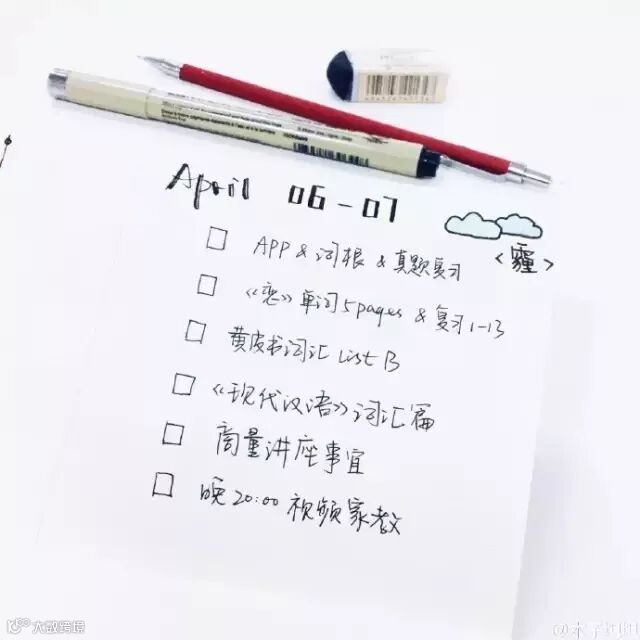 April 06-07
<霾>
□ APP & 词根 & 真题复习
□ 《恋》单词5pages & 复习1-13
□ 黄皮书词汇 List 13
□ 《现代汉语》词汇篇
□ 商量讲座事宜
□ 晚20:00 视频家教
大数跨境